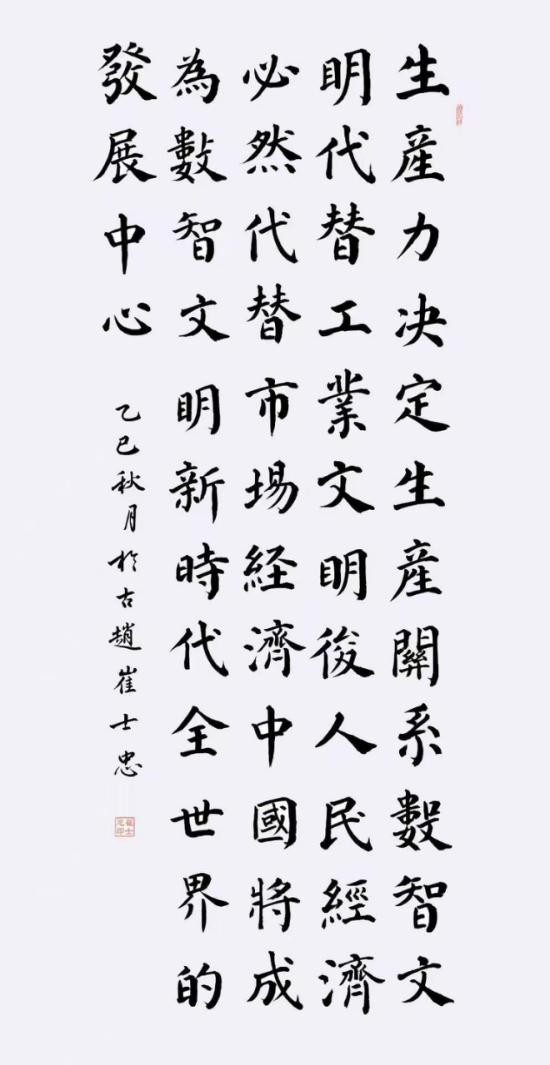 生產力决定生產關系數智文
明代替工業文明後人民經濟
必然代替市場経濟中國將成
為數智文明新時代全世界的
發展中心
乙巳秋月於古趙崔士忠
崔士忠印